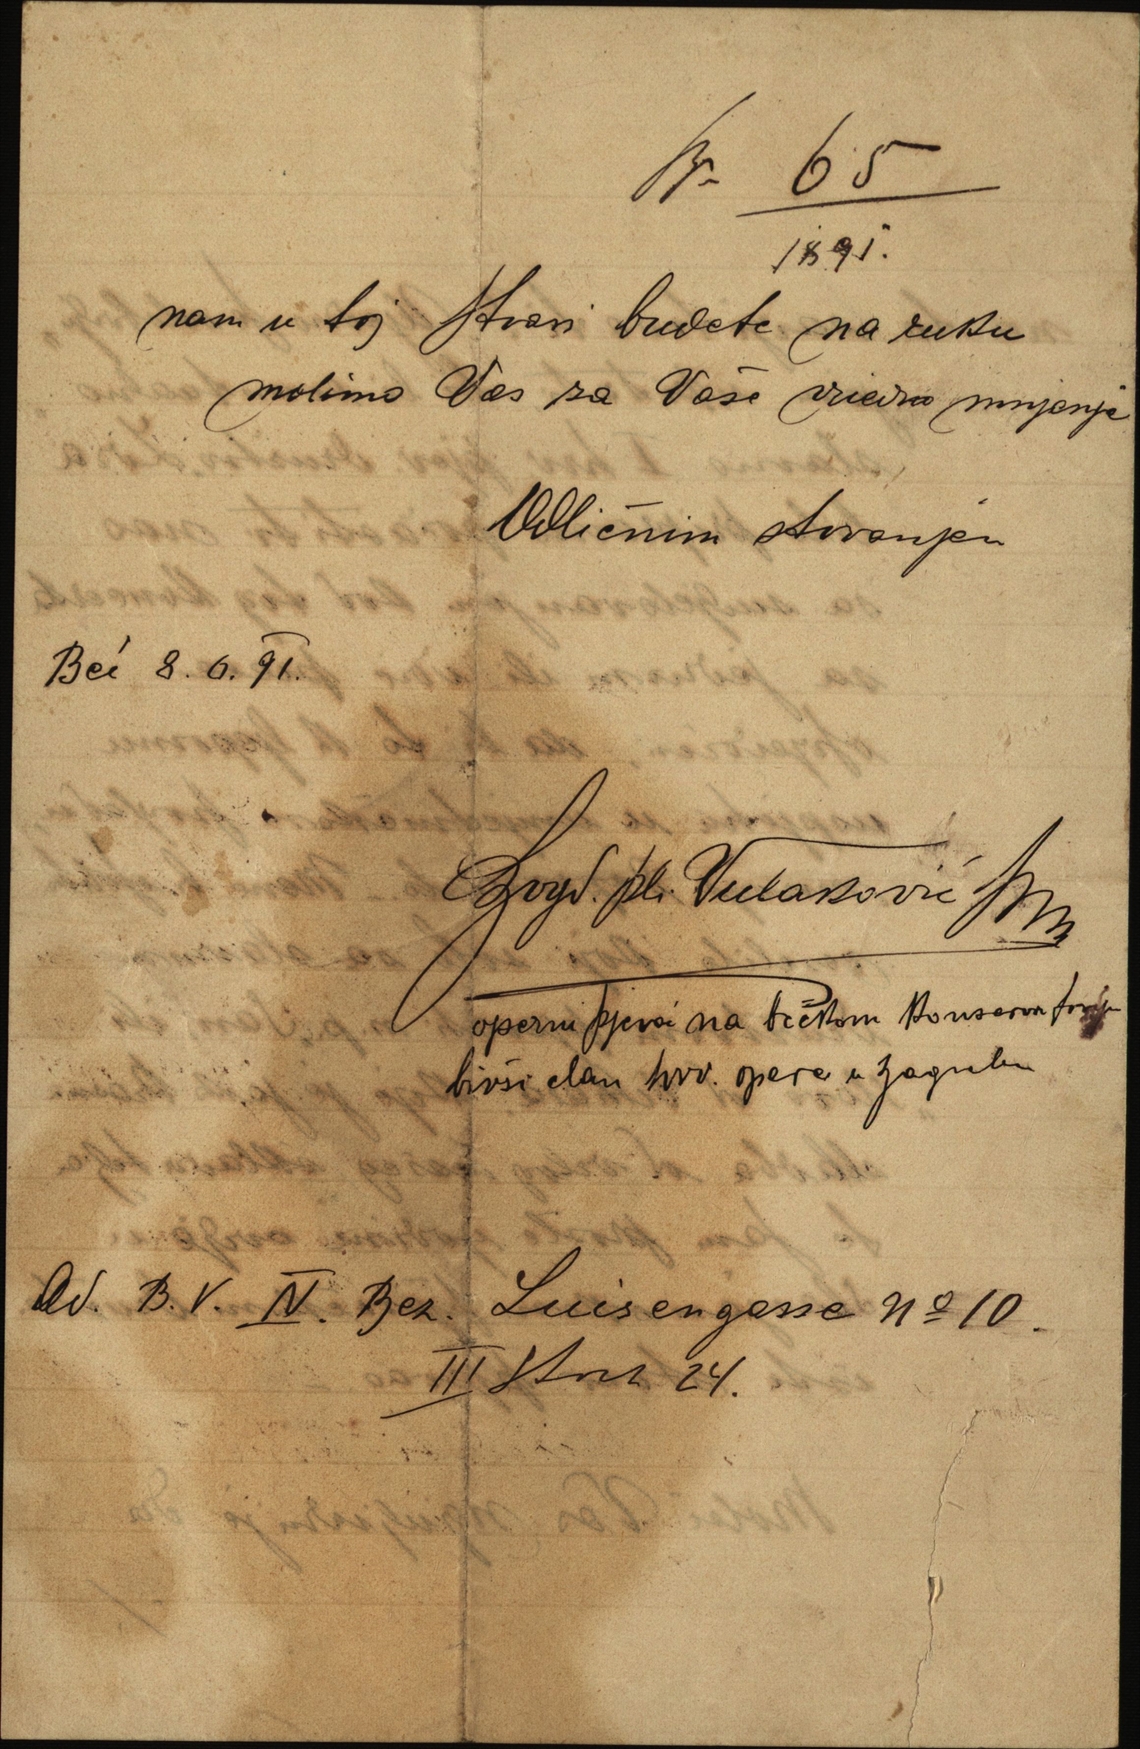 Br. 65
1891.
nam u toj stvari budete na ruku
molimo Vas za Vaše vriedno mnjenje
Odličnim štovanjem
Beč 8. 6. 91.
Bogd. pl. Vulaković
operni pjevač na bečkom Konservatoriju
bivši član hrv. opere u Zagrebu
Ad. B. V. IV. Bez. Luisengasse No 10.
III Stock 24.